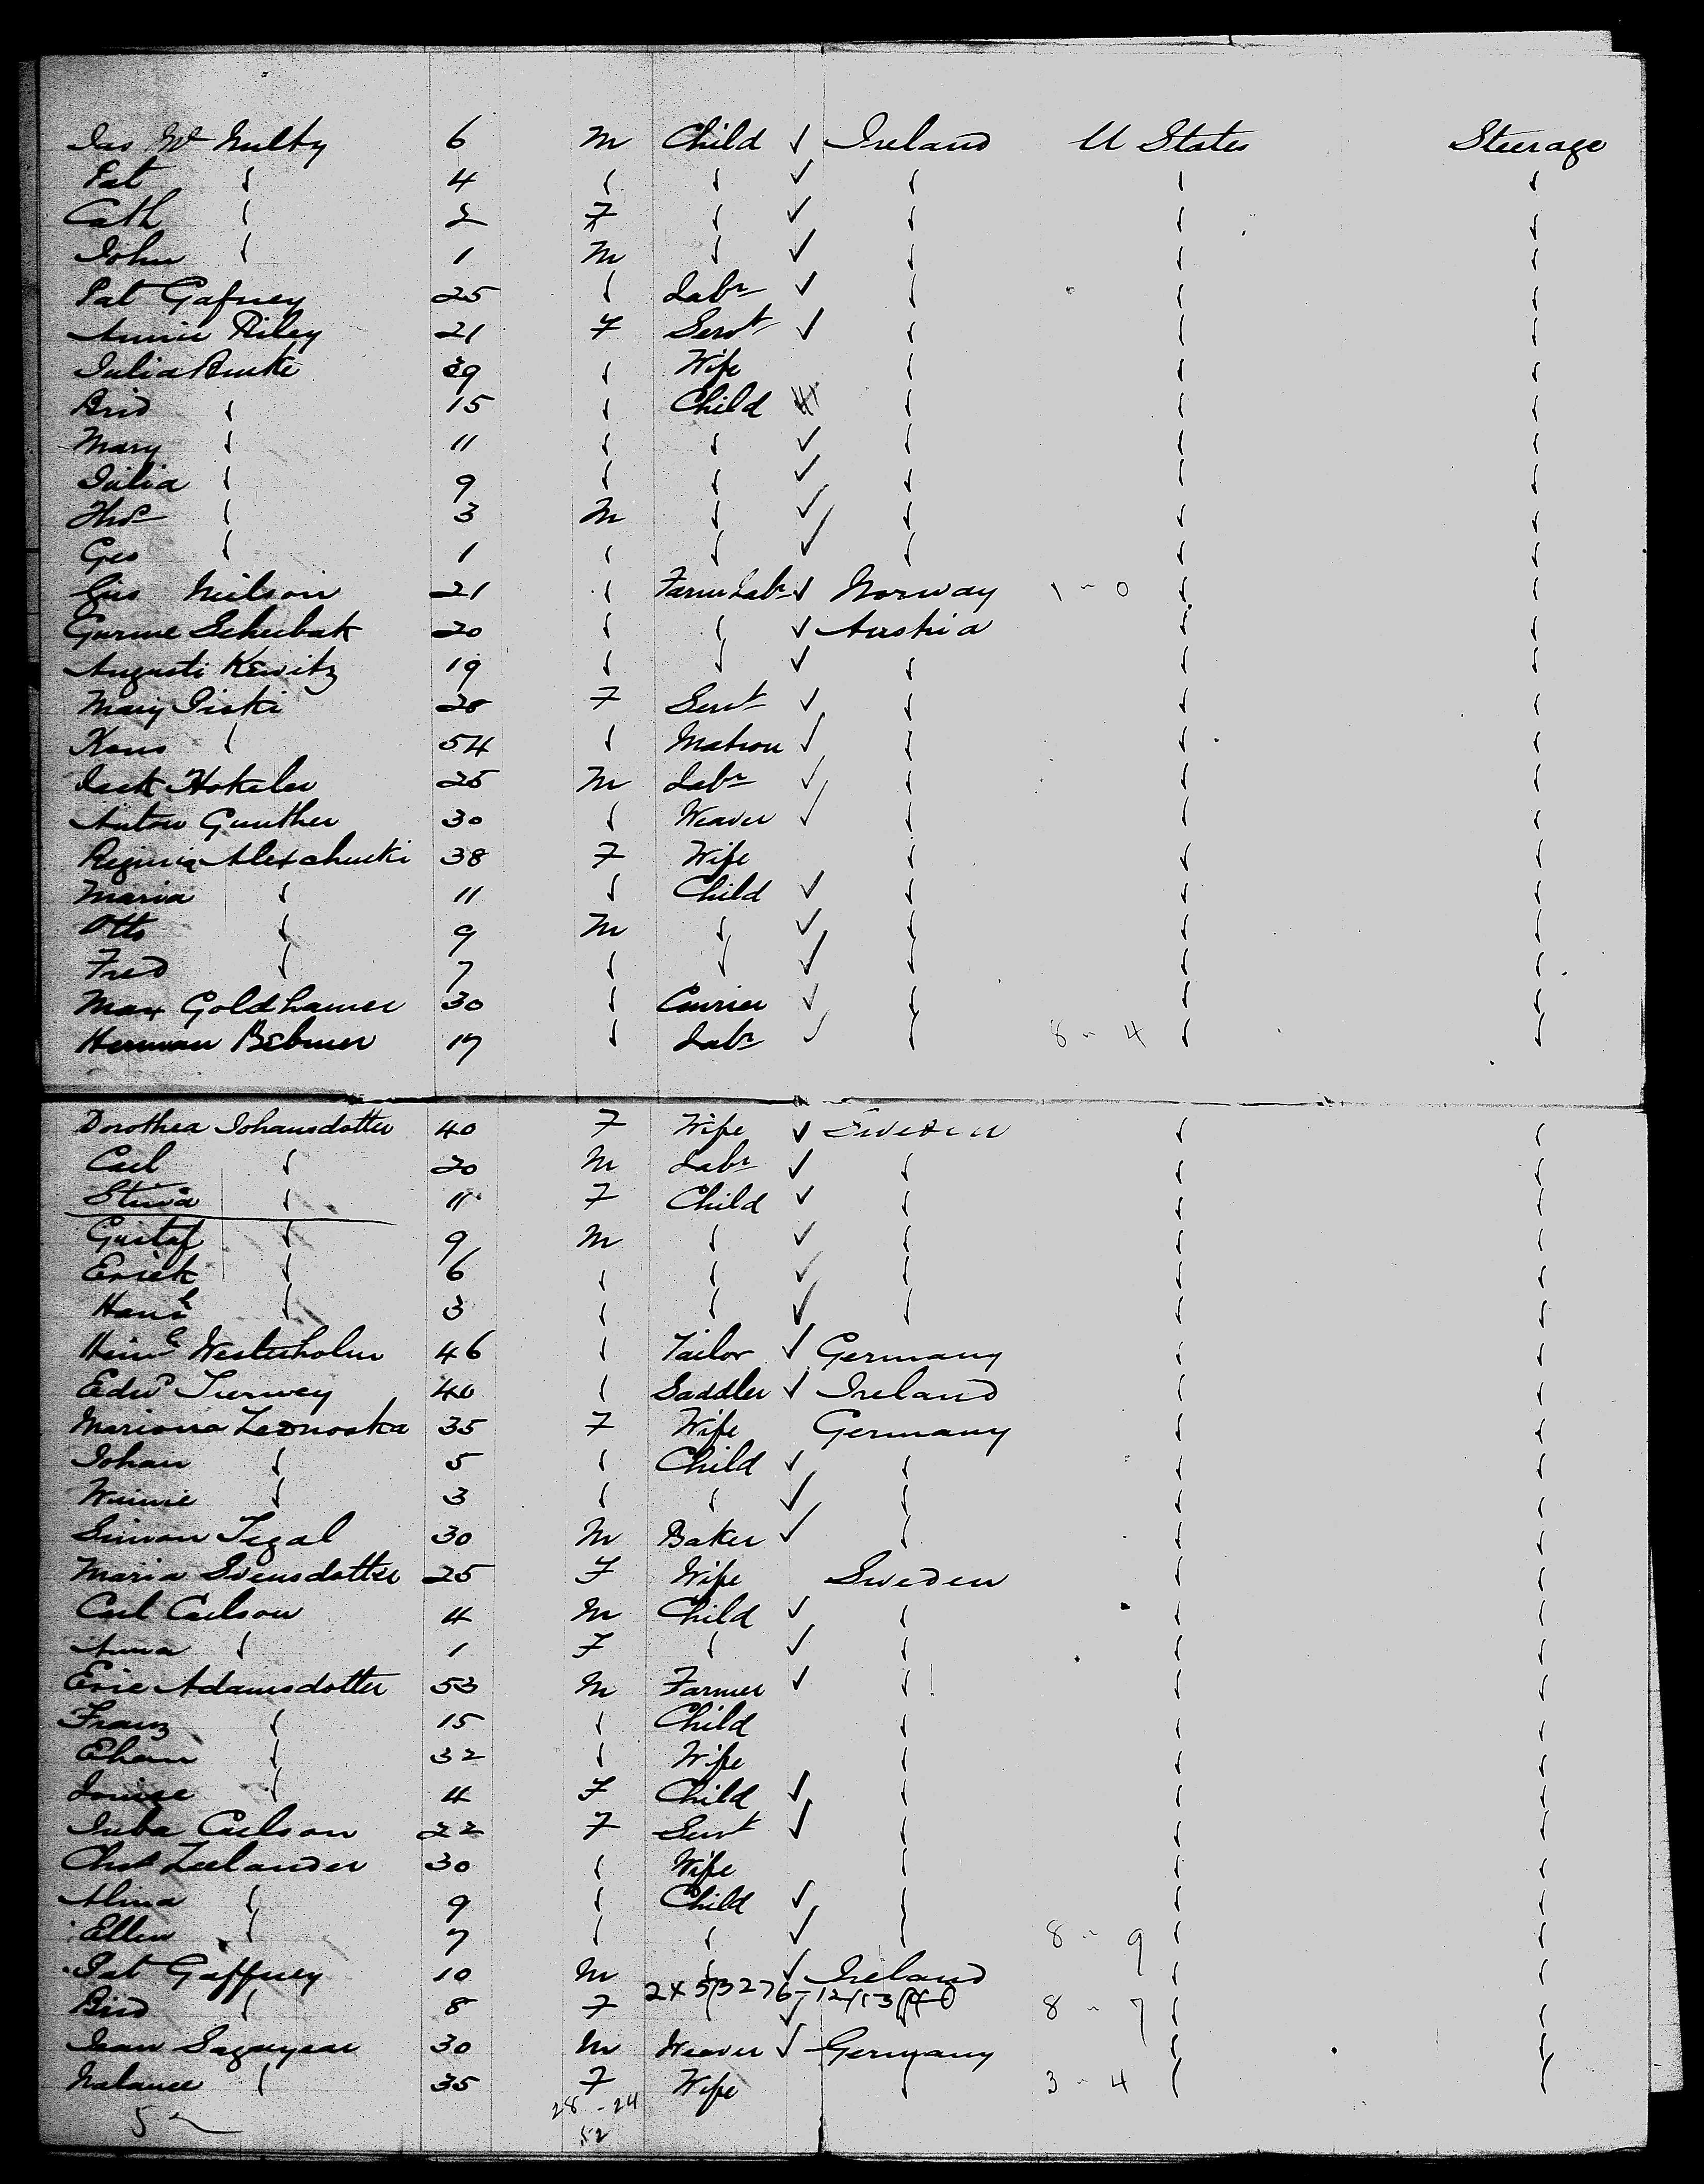 Jas McNulty 6 M Child ✓ Ireland U States Steerage
Pat " 4 " " ✓ " " "
Cath " 2 F " ✓ " " "
John " 1 M " ✓ " " "
Pat Gafney 25 " Labr ✓ " " "
Annie Riley 21 F Servt ✓ " " "
Julia Burke 39 " Wife " " "
Brid " 15 " Child " " "
Mary " 11 " " ✓ " " "
Julia " 9 " " ✓ " " "
Thos " 3 M " ✓ " " "
Geo " 1 " " ✓ " " "
Gus Neilson 21 " Farm Labr ✓ Norway 1 - 0 " "
20 " " ✓ Austria " "
Auguste Kewitz 19 " " ✓ " " "
Mary 28 F Servt ✓ " " "
" 54 " Matron ✓ " " "
25 M Labr ✓ " " "
Anton Gunther 30 " Weaver ✓ " " "
Regina 38 F Wife " " "
Maria " 11 " Child ✓ " " "
Otto " 9 M " ✓ " " "
Fred " 7 " " ✓ " " "
Max Goldhamer 30 " Currier ✓ " " "
Herman 17 " Labr ✓ " 8 - 4 " "
Dorothea Johansdotter 40 F Wife ✓ Sweden " "
Carl " 20 M Labr ✓ " " "
Stina " 11 F Child ✓ " " "
Gustaf " 9 M " ✓ " " "
Erick " 6 " " ✓ " " "
" 3 " " ✓ " " "
Heinh Westerholm 46 " Tailor ✓ Germany " "
Edwd Turvey 40 " Saddler ✓ Ireland " "
Mariana 35 F Wife Germany " "
Johan " 5 " Child ✓ " " "
Winnie " 3 " " ✓ " " "
Simon Tegal 30 M Baker ✓ " " "
Maria Svensdotter 25 F Wife Sweden " "
Carl Carlson 4 M Child ✓ " " "
Anna " 1 F " ✓ " " "
Eric Adamsdotter 53 M Farmer ✓ " " "
Franz " 15 " Child " " "
" 32 " Wife " " "
Louise " 4 F Child ✓ " " "
Carlson 22 F Servt ✓ " " "
Chst Zeelander 30 " Wife " " "
Alma " 9 " Child ✓ " " "
Ellen " 7 " " ✓ " 8 - 9 " "
Pat Gaffney 10 M " ✓ Ireland " "
2x53276-12/13/40
Brid " 8 F " ✓ " 8 - 7 " "
30 M Weaver ✓ Germany " "
" 35 F Wife " 3 - 4 " "
28 - 24
52
52